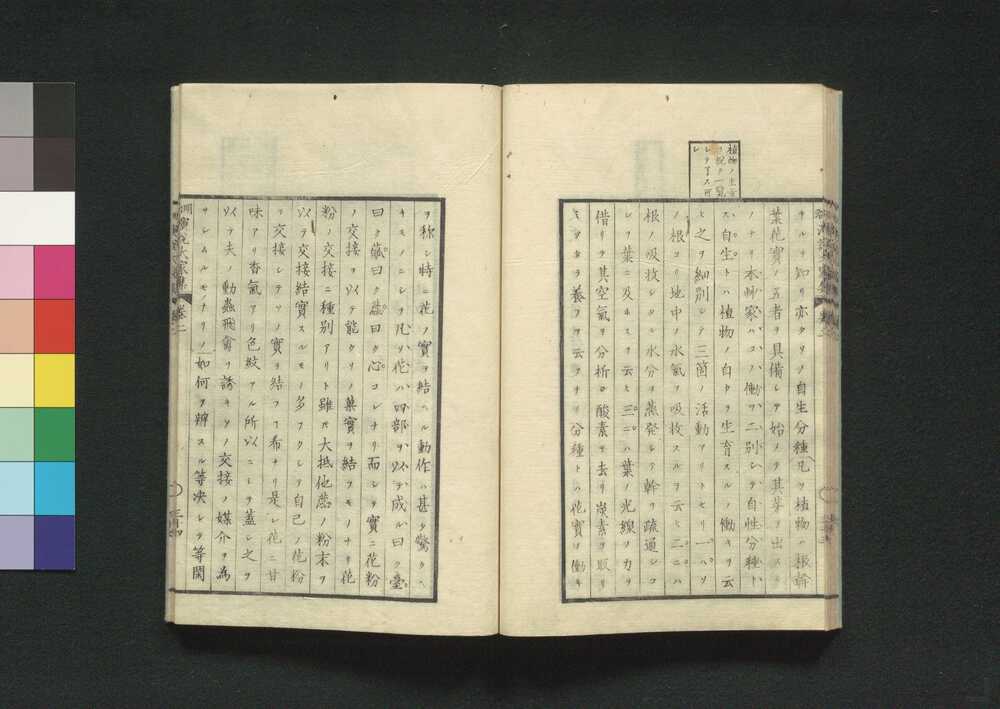 植物ノ生育
ヲ説ク一覧
シテ了ス可
シ
キルヲ知リ亦タソノ自生分種凡ソ植物ハ根幹
葉花實ノ五者ヲ具備シテ始メテ其芽ヲ出スモ
ノナリ本草家ハコノ働ヲ二別シテ自性分種ト
ス自生トハ植物ノ自カラ生育スルノ働キヲ云
ヒ之ヲ細別シテ三箇ノ活動アリトセリ一ハソ
ノ根ヨリ地中ノ水氣ヲ吸收スルヲ云ヒ二ニハ
根ノ吸收シタル水分ヲ蒸発シテ幹ヲ疏通シコ
レヲ葉ニ及ホスヲ云ヒ三ニハ葉ノ光線ヲカリ
借リテ其空氣ヲ分析シ酸素ヲ去リ炭素ヲ取リ
ミツカラヲ養フヲ云フナリ分種トハ花實ノ働キ
ヲ称シ特ニ花ノ實ヲ結ヘル動作ハ甚タ驚クヘ
キモノニシテ凡ソ花ハ四部ヲ以テ成ル曰ク臺
曰ク瓣曰ク蕊曰ク心コレナリ而シテ實ニ花粉
ノ交接ヲ以テ能クソノ菓實ヲ結フモノナリ花
粉ノ交接ニ種別アリト雖モ大抵他蕊ノ粉末ヲ
以テ交接結實スルモノ多フクシテ自己ノ花粉
ヲ交接シテソノ實ヲ結フハ希ナリ是レ花ニ甘
味アリ香氣アリ色紋アル所以ニシテ蓋シ之ヲ
以テ夫ノ動蟲飛禽ヲ誘キソノ交接ノ媒介ヲ為
サシムルモノナリノ如何ヲ辨スル等决シテ等閑
演説大家集 卷二